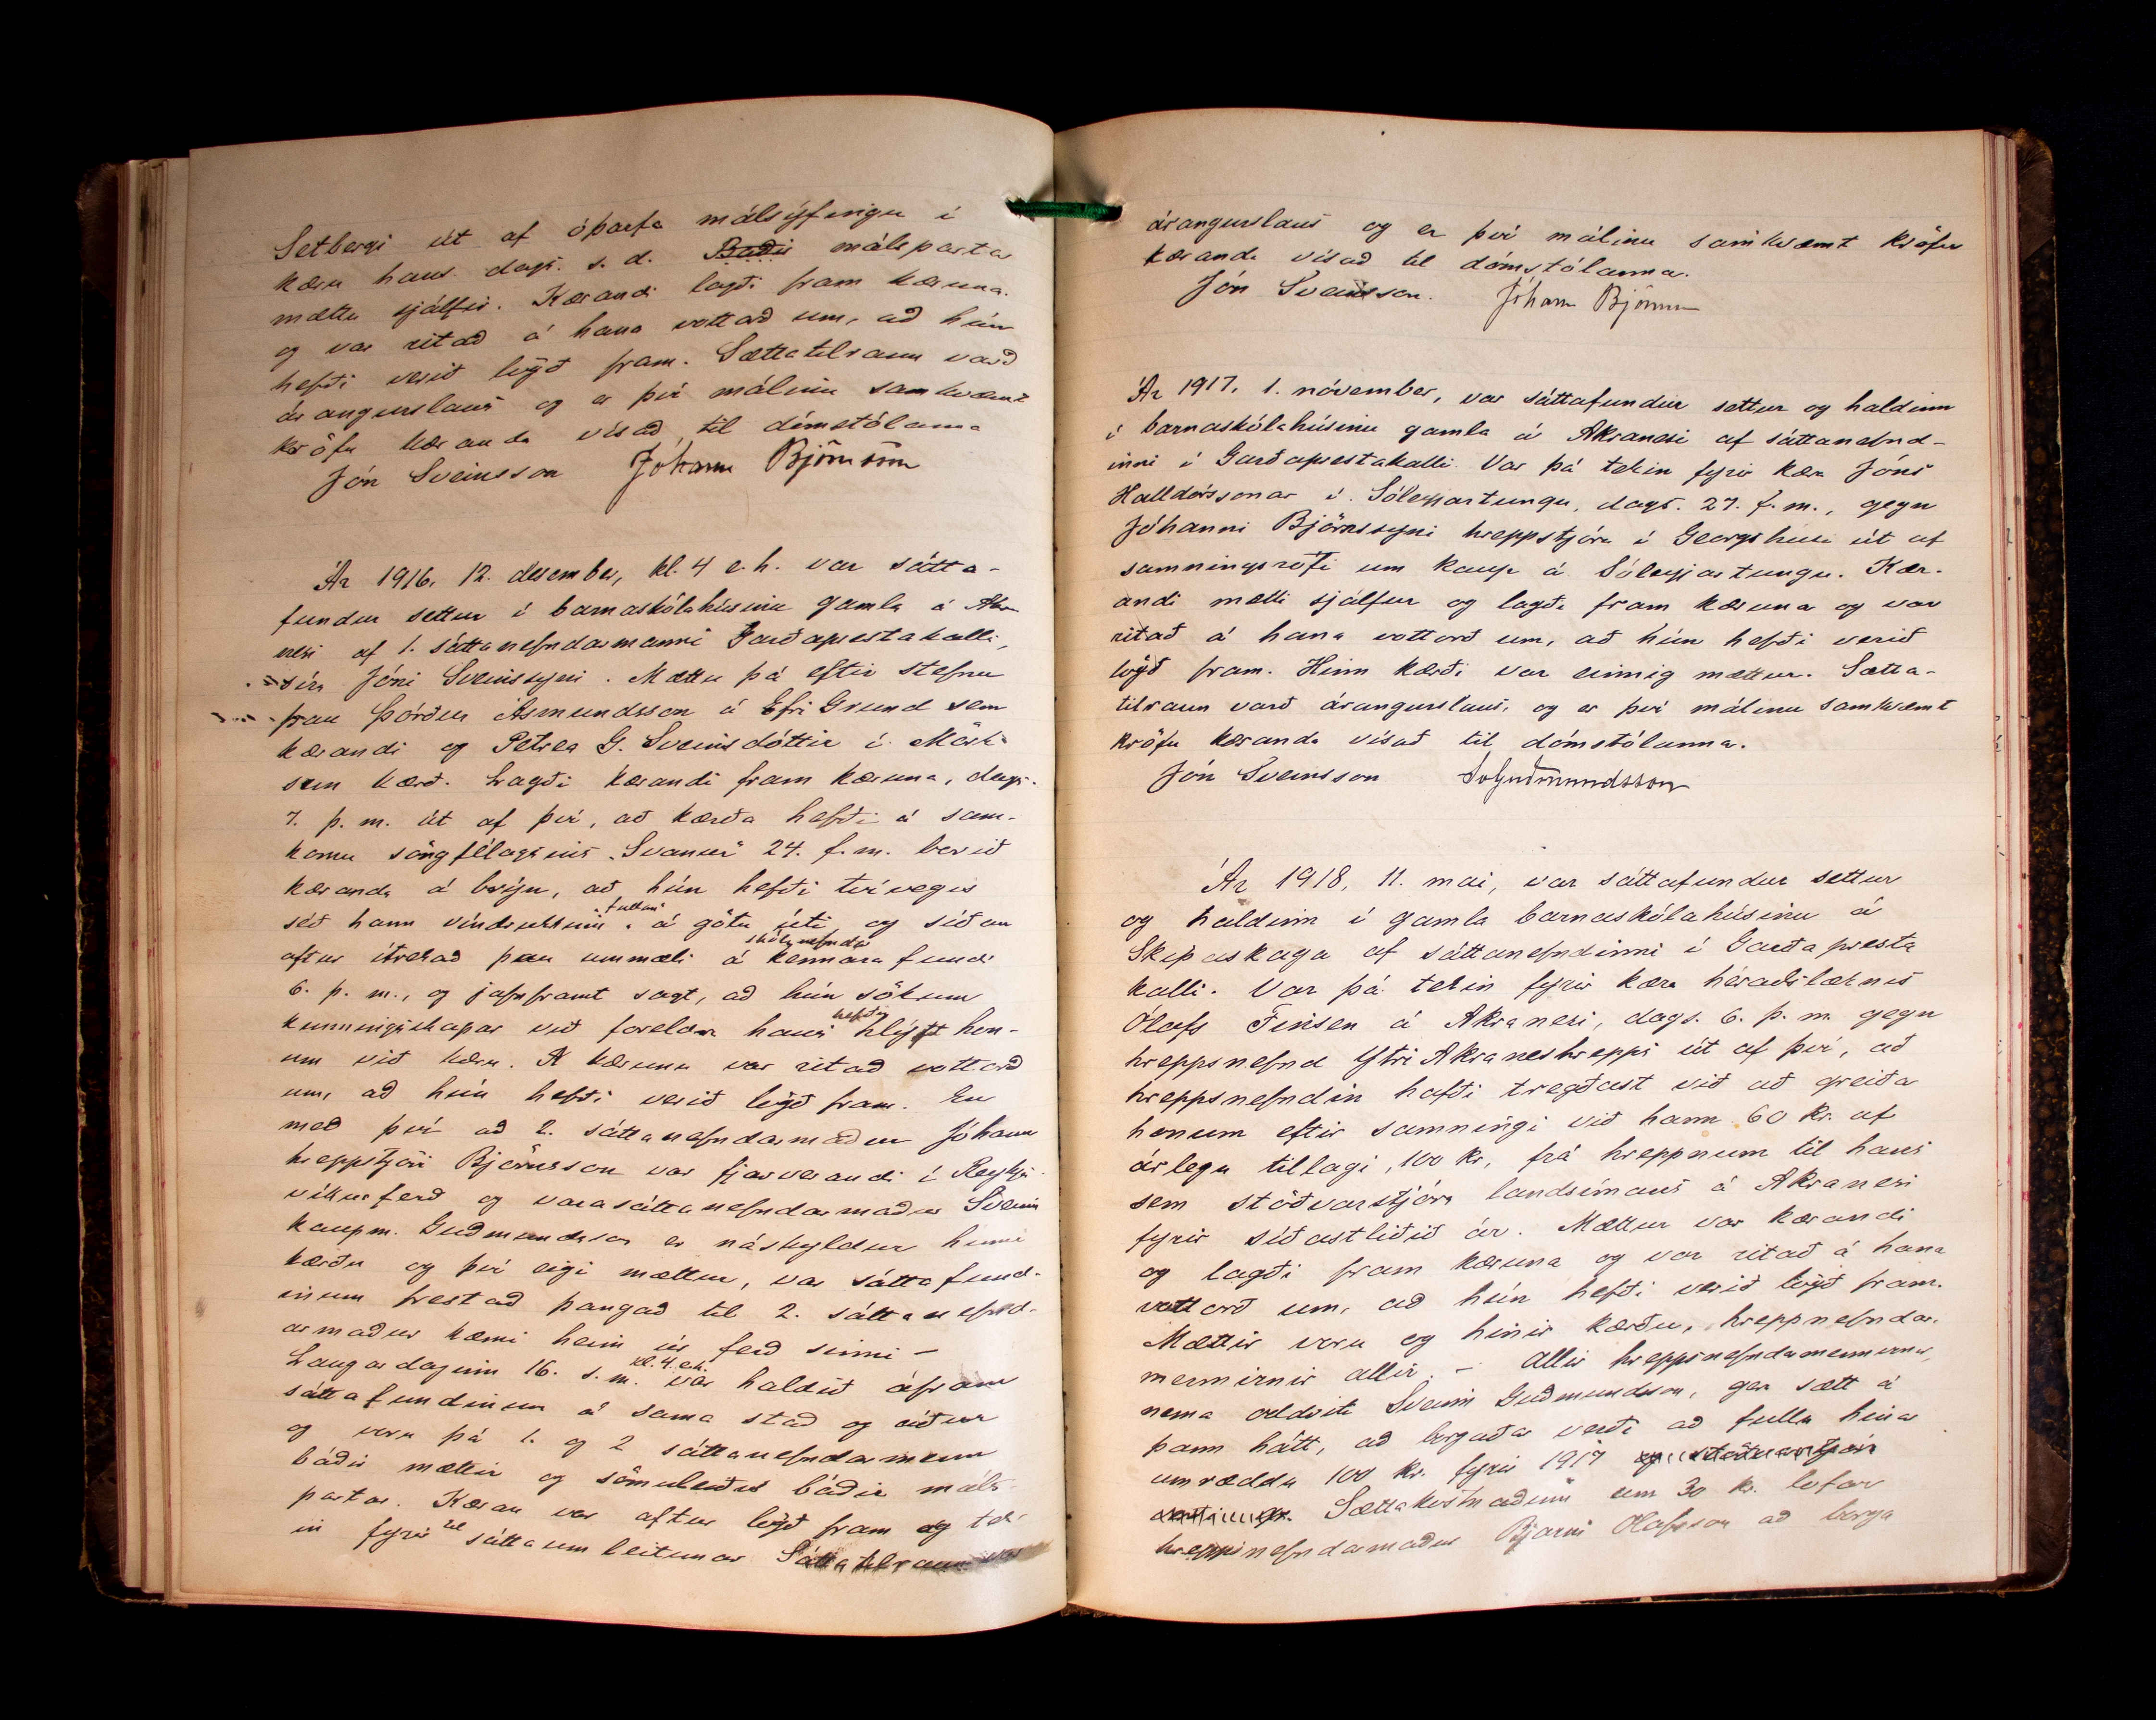 Setbergi út af óþarfa málsýfingu í
kæru hans dags. s. d. Báðir málspartar
mættu sjálfir. Kærandi lagði fram kæruna
og var ritað á hana vottað um, að hún
hefði verið lögð fram. Sættatilraun varð
árangurslaus og er því málinu samkvæmt
kröfu kæranda vísað til dómstólanna
Jón Sveinsson Jóhann Björnsson
Ár 1916, 12. desember, kl. 4 e. h. var sátta-
fundur settur í barnaskólahúsinu gamla á Akra-
nesi af 1. sáttanefndarmanni Garðaprestakalli,
síra Jóni Sveinssyni. Mættu þá eftir stefnu
þau Þórður Ásmundsson á Efri Grund sem
kærandi og Petrea G. Sveinsdóttir í Mörk
sem kærð. Lagði kærandi fram kæruna, dags.
7. þ. m. út af því, að kærða hefði á sam-
komu söngfélagsins „Svanur" 24. f. m. borið
kæranda á brýn, að hún hefði tvívegis
séð hann víndrukkinn „fullan" á götu úti og síðan
aftur ítrekað þau ummæli á kennara skólanefnda fundi
6. þ. m., og jafnframt sagt, að hún sökum
kunningsskapar við foreldra hans hefði hlýft hon-
um við kæru. Á kæruna var ritað vottorð
um, að hún hefði verið lögð fram. En
með því að 2. sáttanefndarmaður Jóhann
hreppstjóri Björnsson var fjarverandi í Reykja-
víkurferð og varasáttanefndarmaður Sveinn
kaupm. Guðmundsson er náskyldur hinni
kærðu og því eigi mættur, var sáttafund-
inum frestað þangað til 2. sáttanefnd-
armaður kæmi heim úr ferð sinni –
Laugardaginn 16. s. m. kl. 4 e.h. var haldið áfram
sáttafundinum á sama stað og áður
og voru þá 1. og 2 sáttanefndarmenn
báðir mættir og sömuleiðis báðir máls-
partar. Kæran var aftur lögð fram og tek-
in fyrir til sáttaumleitunar Sáttatilraun var
árangurslaus og er því málinu samkvæmt kröfu
kæranda vísað til dómstólanna.
Jón Sveinsson. Jóhann Björnsson
Ár 1917, 1. nóvember, var sáttafundur settur og haldinn
í barnaskólahúsinu gamla á Akranesi af sáttanefnd-
inni í Garðaprestakalli. Var þá tekin fyrir kæra Jóns
Halldórssonar í Sóleyjartungu, dags. 27. f. m., gegn
Jóhanni Björnssyni hreppstjóra í Georgshúsi út af
samningsrofi um kaup á Sóleyjartungu. Kær-
andi mætti sjálfur og lagði fram kæruna og var
ritað á hana vottorð um, að hún hefði verið
lögð fram. Hinn kærði var einnig mættur. Sætta-
tilraun varð árangurslaus, og er því málinu samkvæmt
kröfu kæranda vísað til dómstólanna.
Jón Sveinsson SvGuðmundsson
Ár 1918, 11. maí, var sáttafundur settur
og haldinn í gamla barnaskólahúsinu á
Skipaskaga af sáttanefndinni í Garðapresta
kalli. Var þá tekin fyrir kæra héraðslæknis
Ólafs Finsen á Akranesi, dags. 6. þ. m. gegn
hreppsnefnd Ytri Akraneshrepps út af því, að
hreppsnefndin hafði tregðast við að greiða
honum eftir samningi við hann 60 kr. af
árlegu tillagi, 100 kr, frá hreppnum til hans
sem stöðvarstjóra landsímans á Akranesi
fyrir síðastliðið ár. Mættur var kærandi
og lagði fram kæruna og var ritað á hana
vottorð um, að hún hefði verið lögð fram.
Mættir voru og hinir kærðu, hreppnefndar-
mennirnir allir. – Allir hreppsnefndarmennirnir,
nema oddviti Sveinn Guðmundsson, gera sætt á
þann hátt, að borgaðar verði að fullu hinar
umræddu 100 kr. fyrir 1917
Sættakostnaðinn um 30 kr. lofar
hreppsnefndarmaður Bjarni Ólafsson að borga